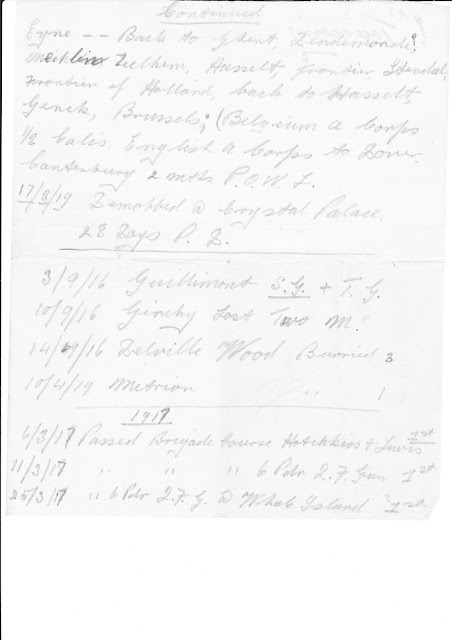 Continued
Eyne -- Back to Ghent, Dendimonde?
Meihlin Zeelhem, Hasselt, Frontier, Stendal,
Frontier of Holland, back to Hasselt,
Genck, Brussels, (Belgium A Corps
1/2 Calis. English A Corps to Dover.
Canterbury 2 mths P.O.W.L.
17/8/19 Demobbed @ Crystal Palace,
28 Days P. L.
3/9/16 Guillimont S.G. + T. G.
10/9/16 Ginchy Lost Two M?
14/9/16 Delville Wood Burried 3
10/4/19 " 1
1917
6/3/17 Passed Brigade Course Hotchkins & Lewis 1st
11/3/17 " " " 6 Pdr Q.F. Gun 1st
25/3/17 " 6 Pdr Q.F.G. @ Whale Island 1st